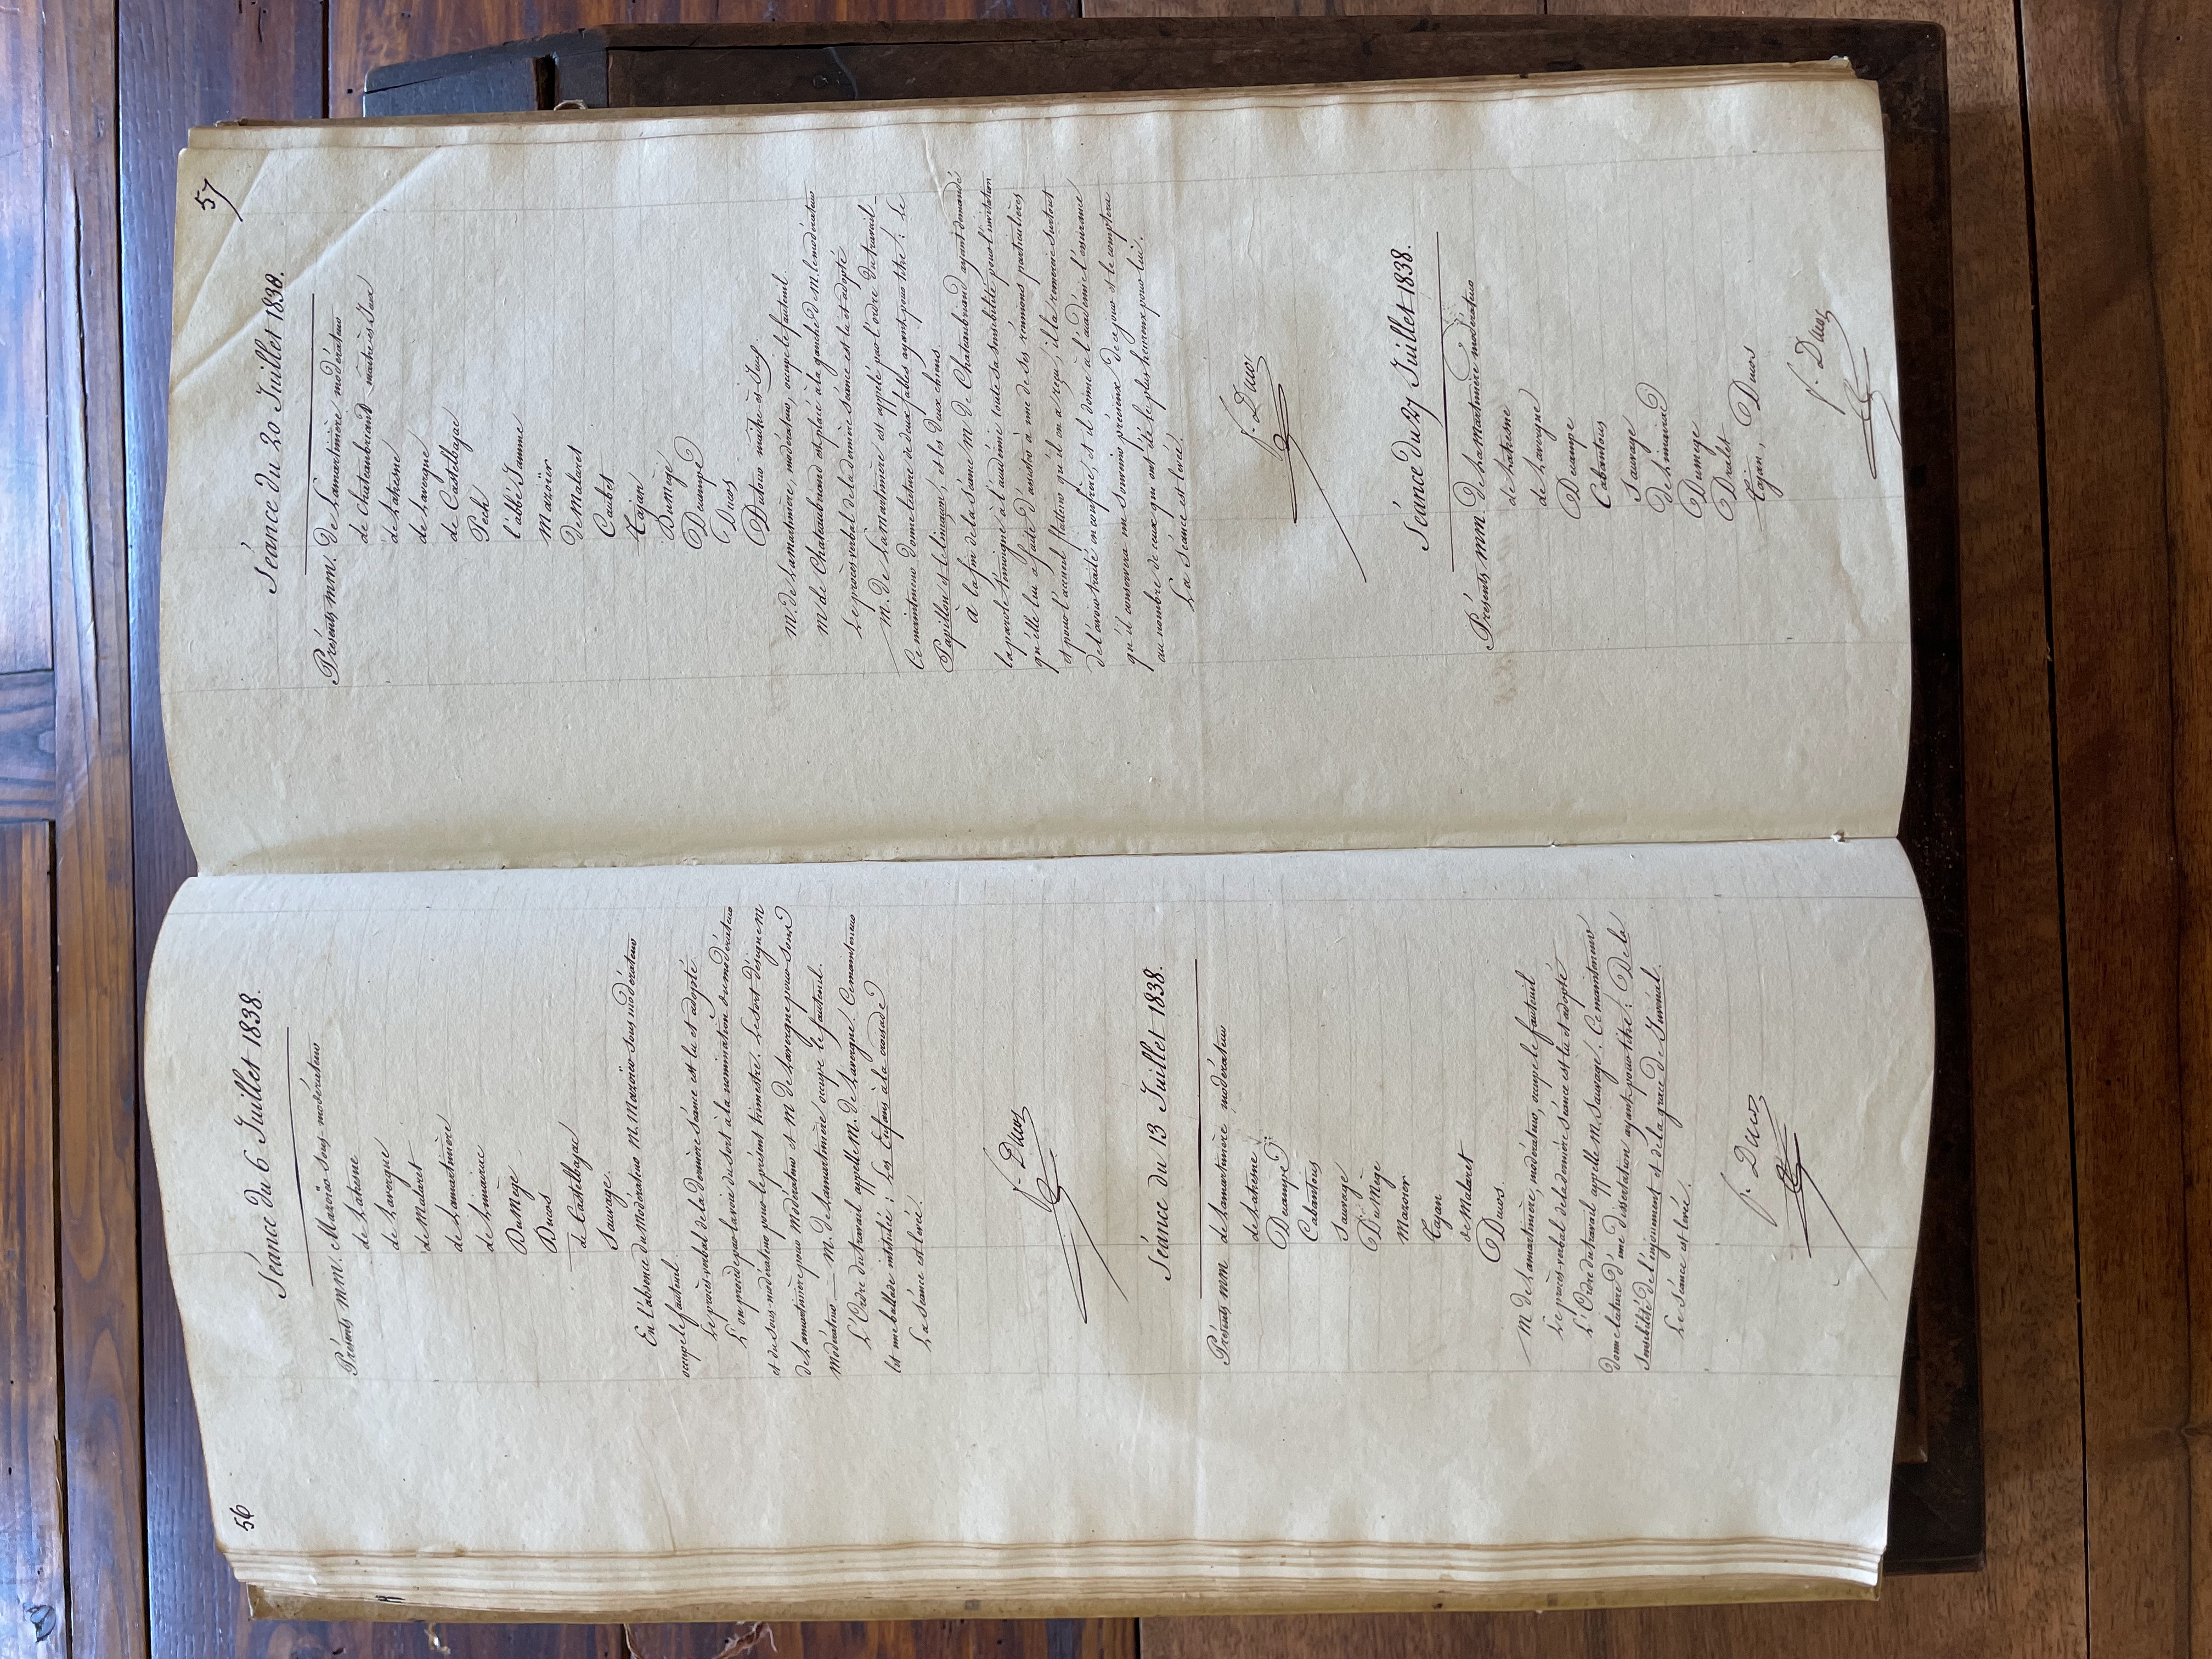 56
Séance du 6 Juillet 1838.
Présents MM. Mazoïer sous-modérateur
de Lahesne
de Lavergne
de Malaret
de Lamartinière
de Limairac
DuMège
Ducos
de Castelbajac
Sauvage
En l'absence du Modérateur M. Mazoïer sous modérateur
occupe le fauteuil.
Le procès-verbal de la dernière séance est lu et adopté
L'on procède par la voie du sort à la nomination du modérateur
et du sous-modérateur pour le présent trimestre. Le sort désigne M
de Lamartinière pour Modérateur et M de Lavergne pour sous
Modérateur — M. de Lamartinière occupe le fauteuil.
L'Ordre du travail appelle M. de Lavergne. Ce mainteneur
lit une ballade intitulée : Les Enfans à la croisade
La séance est levée.
F. Ducos
Séance du 13 Juillet 1838.
Présents MM de Lamartinière modérateur
de Lahesne
Decampe
Cabantous
Sauvage
DuMège
Mazoïer
Tajan
de Malaret
Ducos.
M de Lamartinière, modérateur, occupe le fauteuil
Le procès-verbal de la dernière séance est lu et adopté
L'Ordre du travail appelle M. Sauvage. Ce mainteneur
donne lecture d'une dissertation ayant pour titre : De la
Sensibilité de l'enjouement et de la grace de Juvénal.
La Séance est levée.
F. Ducos
57
Séance du 20 Juillet 1838.
Présents MM. de Lamartinière modérateur
de Chateaubriand maître ès Jeux
de Lahesne
de Lavergne
de Castelbajac
Pech
l'abbé Jamme
Mazoïer
de Malaret
Caubet
Tajan
DuMège
Decampe
Ducos
Dutour maître-ès-Jeux.
M. de Lamartinière, modérateur, occupe le fauteuil.
M de Chateaubriand est placé à la gauche de M. le modérateur
Le procès-verbal de la dernière séance est lu et adopté
M. de Lamartinière est appelé par l'ordre du travail —
Ce mainteneur donne lecture de deux fables ayant pour titre : Le
Papillon et le limaçon, et les deux chiens.
à la fin de la séance M de Chateaubriand ayant demandé
la parole témoigne à l'académie toute sa sensibilité pour l'invitation
qu'elle lui a faite d'assister à une de ses réunions particulières
et pour l'accueil flatteur qu'il en a reçu ; il la remercie surtout
de l'avoir traité en confrère, et il donne à l'académie l'assurance
qu'il conservera un souvenir précieux de ce jour et le comptera
au nombre de ceux qui ont été le plus heureux pour lui.
La Séance est levée.
F. Ducos
Séance du 27 Juillet 1838.
Présents MM. de Lamartinière modérateur
de Lahesne
de Lavergne
Decampe
Cabantous
Sauvage
de Limairac
Dumège
Dralet
Tajan, Ducos
F. Ducos